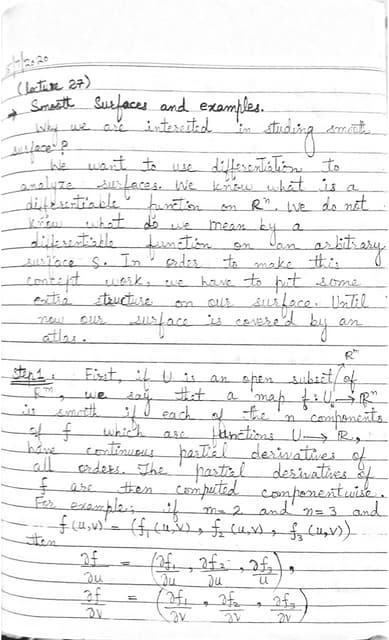 /7/2020
(Lecture 27)
→ Smooth Surfaces and examples.
Why we are interested in studing smooth
surface?
We want to use differentiation to
analyze surfaces. We know what is a
differentiable function on Rⁿ. We do not
know what do we mean by a
differentiable function on an arbitrary
surface S. In order to make this
concept work, we have to put some
extra structure on our surface. Until
now our surface is covered by an
atlas.
Step 1: First, if U is an open subset of
Rᵐ, we say that a map f: U → Rⁿ
is smooth if each of the n components
of f which are functions U → R,
have continuous partial derivatives of
all orders. The partial derivatives of
f are then computed componentwise.
For example; if m=2 and n=3 and
f(u,v) = (f₁(u,v), f₂(u,v), f₃(u,v))
then
∂f/∂u = (∂f₁/∂u, ∂f₂/∂u, ∂f₃/u),
∂f/∂v = (∂f₁/∂v, ∂f₂/∂v, ∂f₃/∂v)